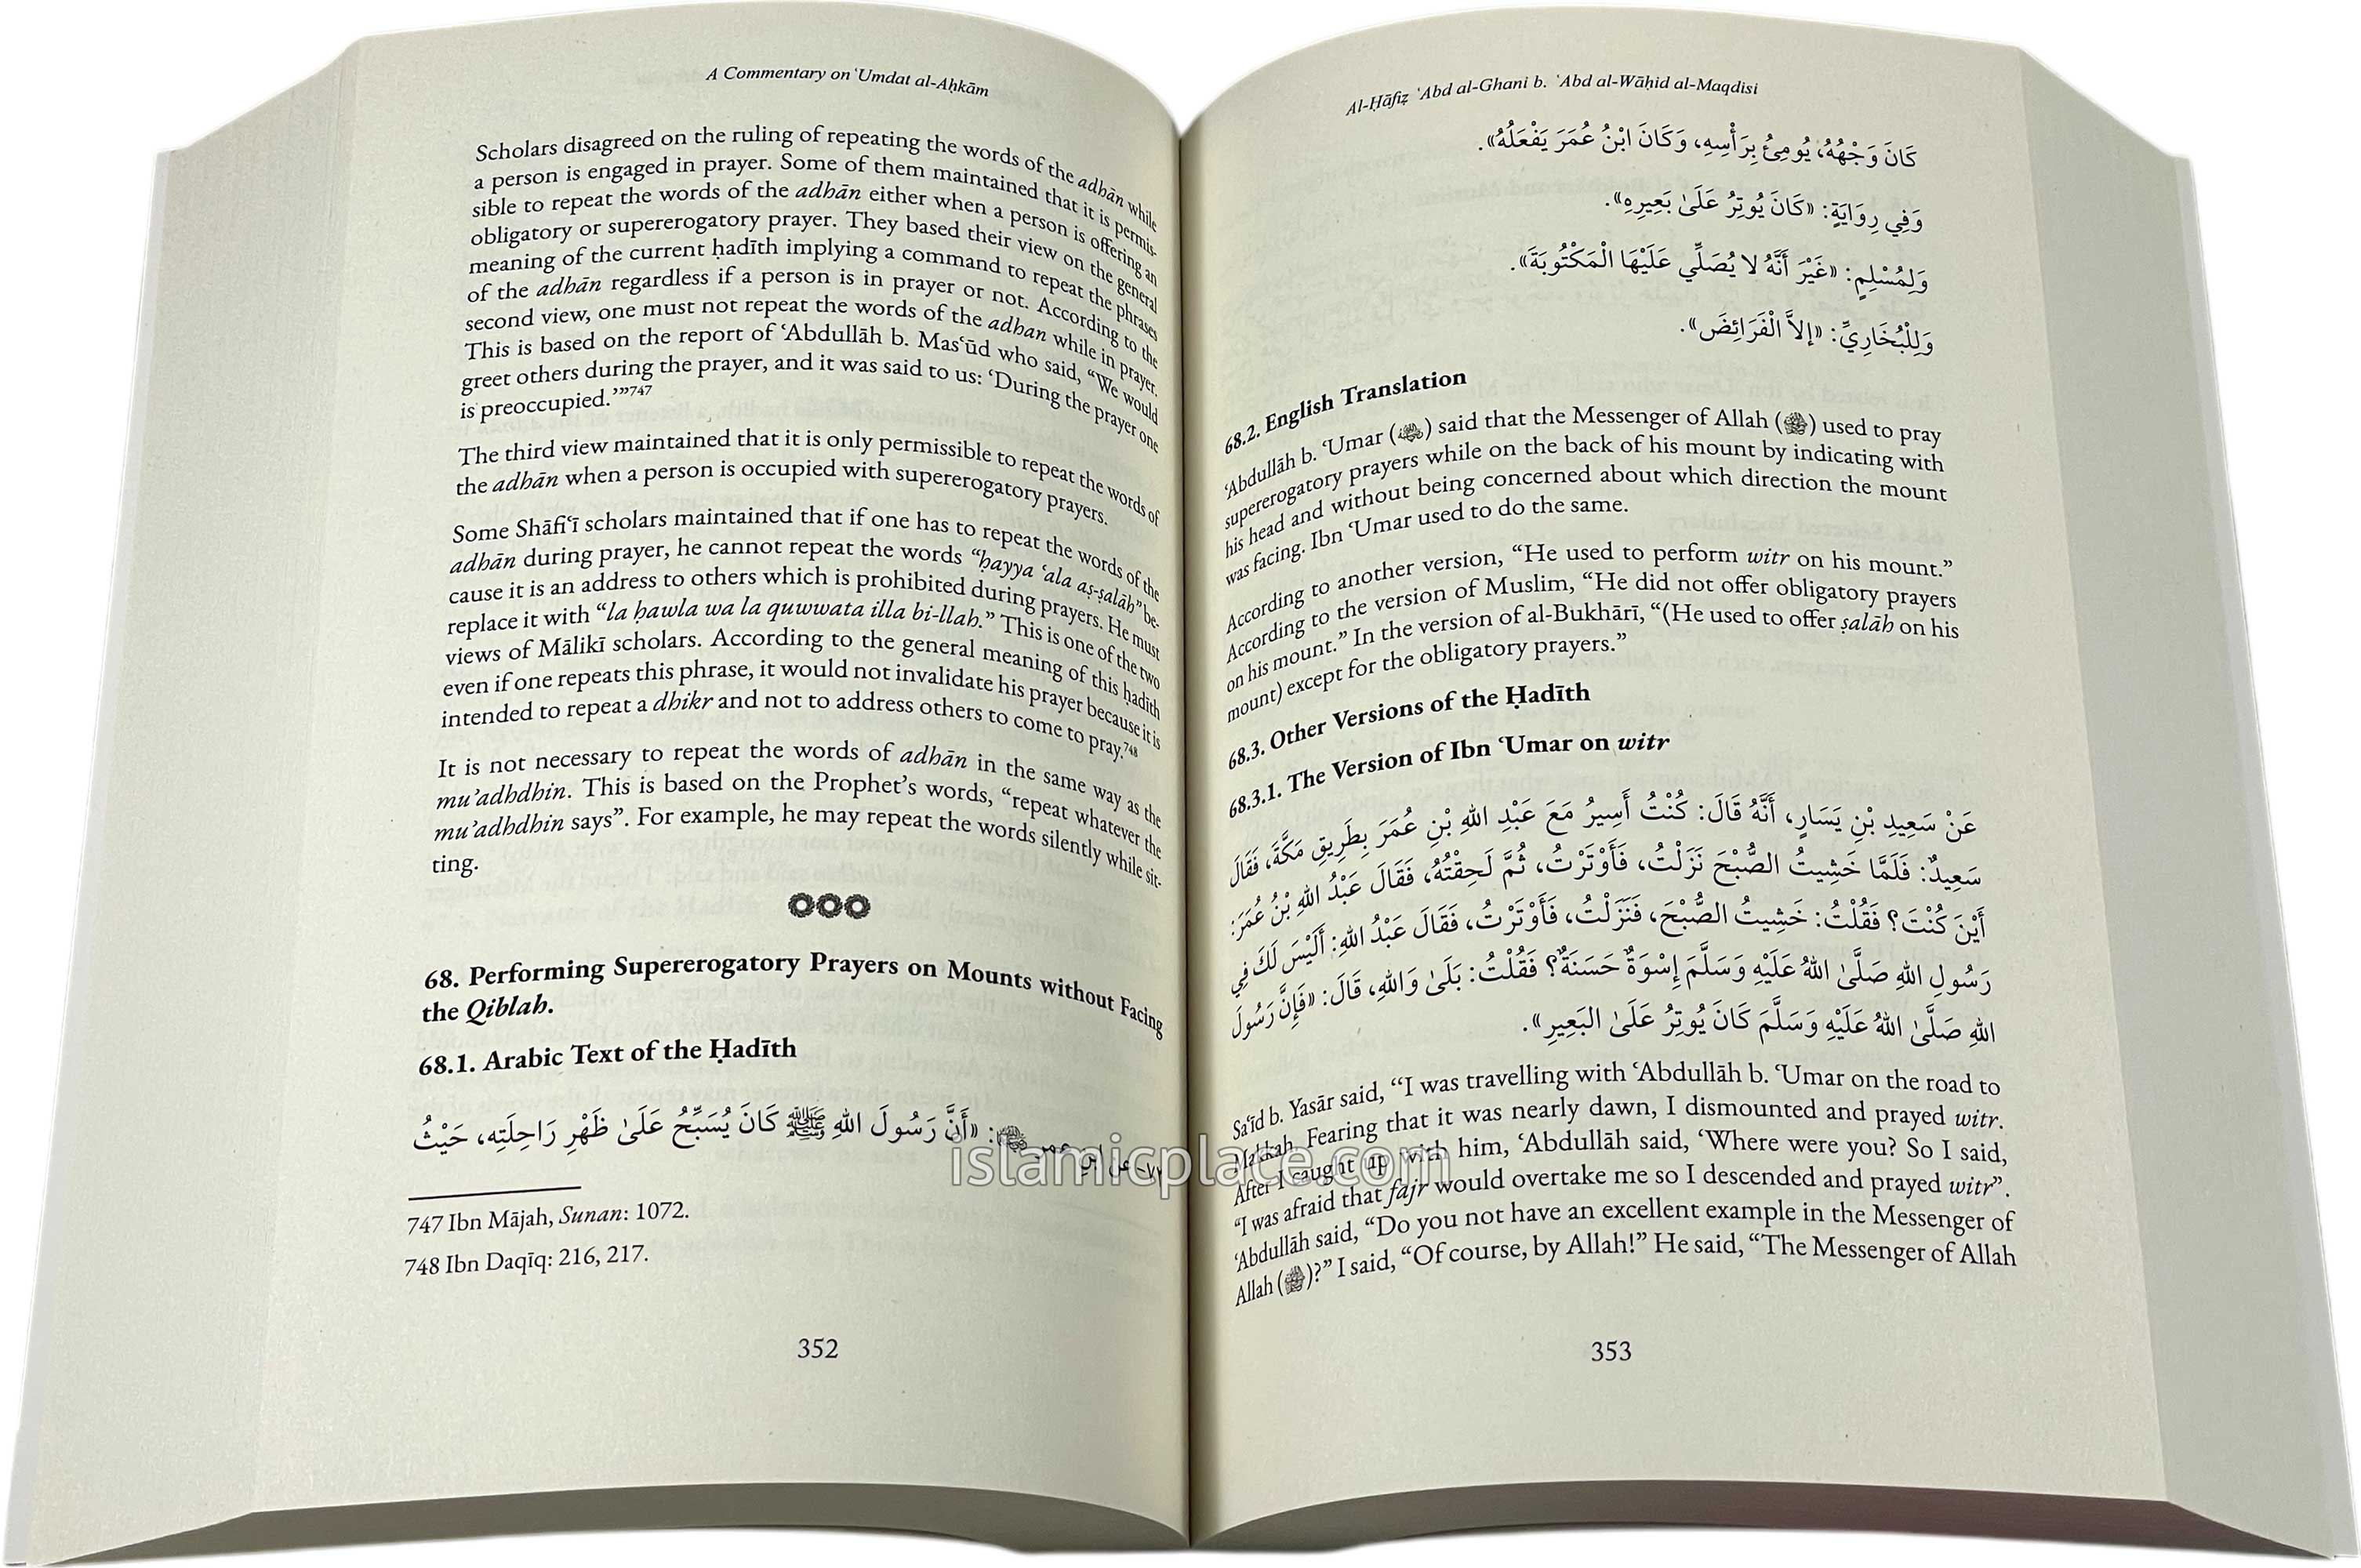 A Commentary on ʿUmdat al-Aḥkām
Scholars disagreed on the ruling of repeating the words of the adhān while
a person is engaged in prayer. Some of them maintained that it is permis-
sible to repeat the words of the adhān either when a person is offering an
obligatory or supererogatory prayer. They based their view on the general
meaning of the current ḥadīth implying a command to repeat the phrases
of the adhān regardless if a person is in prayer or not. According to the
second view, one must not repeat the words of the adhan while in prayer.
This is based on the report of ʿAbdullāh b. Masʿūd who said, “We would
greet others during the prayer, and it was said to us: ‘During the prayer one
is preoccupied.’”747
The third view maintained that it is only permissible to repeat the words of
the adhān when a person is occupied with supererogatory prayers.
Some Shāfiʿī scholars maintained that if one has to repeat the words of the
adhān during prayer, he cannot repeat the words “ḥayya ʿala aṣ-ṣalāh” be-
cause it is an address to others which is prohibited during prayers. He must
replace it with “la ḥawla wa la quwwata illa bi-llah.” This is one of the two
views of Mālikī scholars. According to the general meaning of this ḥadīth
even if one repeats this phrase, it would not invalidate his prayer because it is
intended to repeat a dhikr and not to address others to come to pray.748
It is not necessary to repeat the words of adhān in the same way as the
mu’adhdhin. This is based on the Prophet’s words, “repeat whatever the
mu’adhdhin says”. For example, he may repeat the words silently while sit-
ting.
68. Performing Supererogatory Prayers on Mounts without Facing
the Qiblah.
68.1. Arabic Text of the Ḥadīth
٧٢- عن ابن عمر: «أَنَّ رَسُولَ اللهِ ﷺ كَانَ يُسَبِّحُ عَلَىٰ ظَهْرِ رَاحِلَتِه، حَيْثُ
747 Ibn Mājah, Sunan: 1072.
748 Ibn Daqīq: 216, 217.
352
Al-Ḥāfiẓ ʿAbd al-Ghani b. ʿAbd al-Wāḥid al-Maqdisi
كَانَ وَجْهُهُ، يُومِئُ بِرَأْسِهِ، وَكَانَ ابْنُ عُمَرَ يَفْعَلُهُ».
وَفِي رِوَايَةٍ: «كَانَ يُوتِرُ عَلَىٰ بَعِيرِهِ».
وَلِمُسْلِمٍ: «غَيْرَ أَنَّهُ لا يُصَلِّي عَلَيْهَا الْمَكْتُوبَةَ».
وَلِلْبُخَارِيِّ: «إلاَّ الْفَرَائِضَ».
68.2. English Translation
ʿAbdullāh b. ʿUmar () said that the Messenger of Allah (ﷺ) used to pray
supererogatory prayers while on the back of his mount by indicating with
his head and without being concerned about which direction the mount
was facing. Ibn ʿUmar used to do the same.
According to another version, “He used to perform witr on his mount.”
According to the version of Muslim, “He did not offer obligatory prayers
on his mount.” In the version of al-Bukhārī, “(He used to offer ṣalāh on his
mount) except for the obligatory prayers.”
68.3. Other Versions of the Ḥadīth
68.3.1. The Version of Ibn ʿUmar on witr
عَنْ سَعِيدِ بْنِ يَسَارٍ، أَنَّهُ قَالَ: كُنْتُ أَسِيرُ مَعَ عَبْدِ اللهِ بْنِ عُمَرَ بِطَرِيقِ مَكَّةَ، فَقَالَ
سَعِيدٌ: فَلَمَّا خَشِيتُ الصُّبْحَ نَزَلْتُ، فَأَوْتَرْتُ، ثُمَّ لَحِقْتُهُ، فَقَالَ عَبْدُ اللهِ بْنُ عُمَرَ:
أَيْنَ كُنْتَ؟ فَقُلْتُ: خَشِيتُ الصُّبْحَ، فَنَزَلْتُ، فَأَوْتَرْتُ، فَقَالَ عَبْدُ اللهِ: أَلَيْسَ لَكَ فِي
رَسُولِ اللهِ صَلَّىٰ اللهُ عَلَيْهِ وَسَلَّمَ إِسْوَةٌ حَسَنَةٌ؟ فَقُلْتُ: بَلَىٰ وَاللهِ، قَالَ: «فَإِنَّ رَسُولَ
اللهِ صَلَّىٰ اللهُ عَلَيْهِ وَسَلَّمَ كَانَ يُوتِرُ عَلَىٰ البَعِيرِ».
Saʿīd b. Yasār said, “I was travelling with ʿAbdullāh b. ʿUmar on the road to
Makkah. Fearing that it was nearly dawn, I dismounted and prayed witr.
After I caught up with him, ʿAbdullāh said, ‘Where were you? So I said,
“I was afraid that fajr would overtake me so I descended and prayed witr”.
ʿAbdullāh said, “Do you not have an excellent example in the Messenger of
Allah (ﷺ)?” I said, “Of course, by Allah!” He said, “The Messenger of Allah
353
islamicplace.com